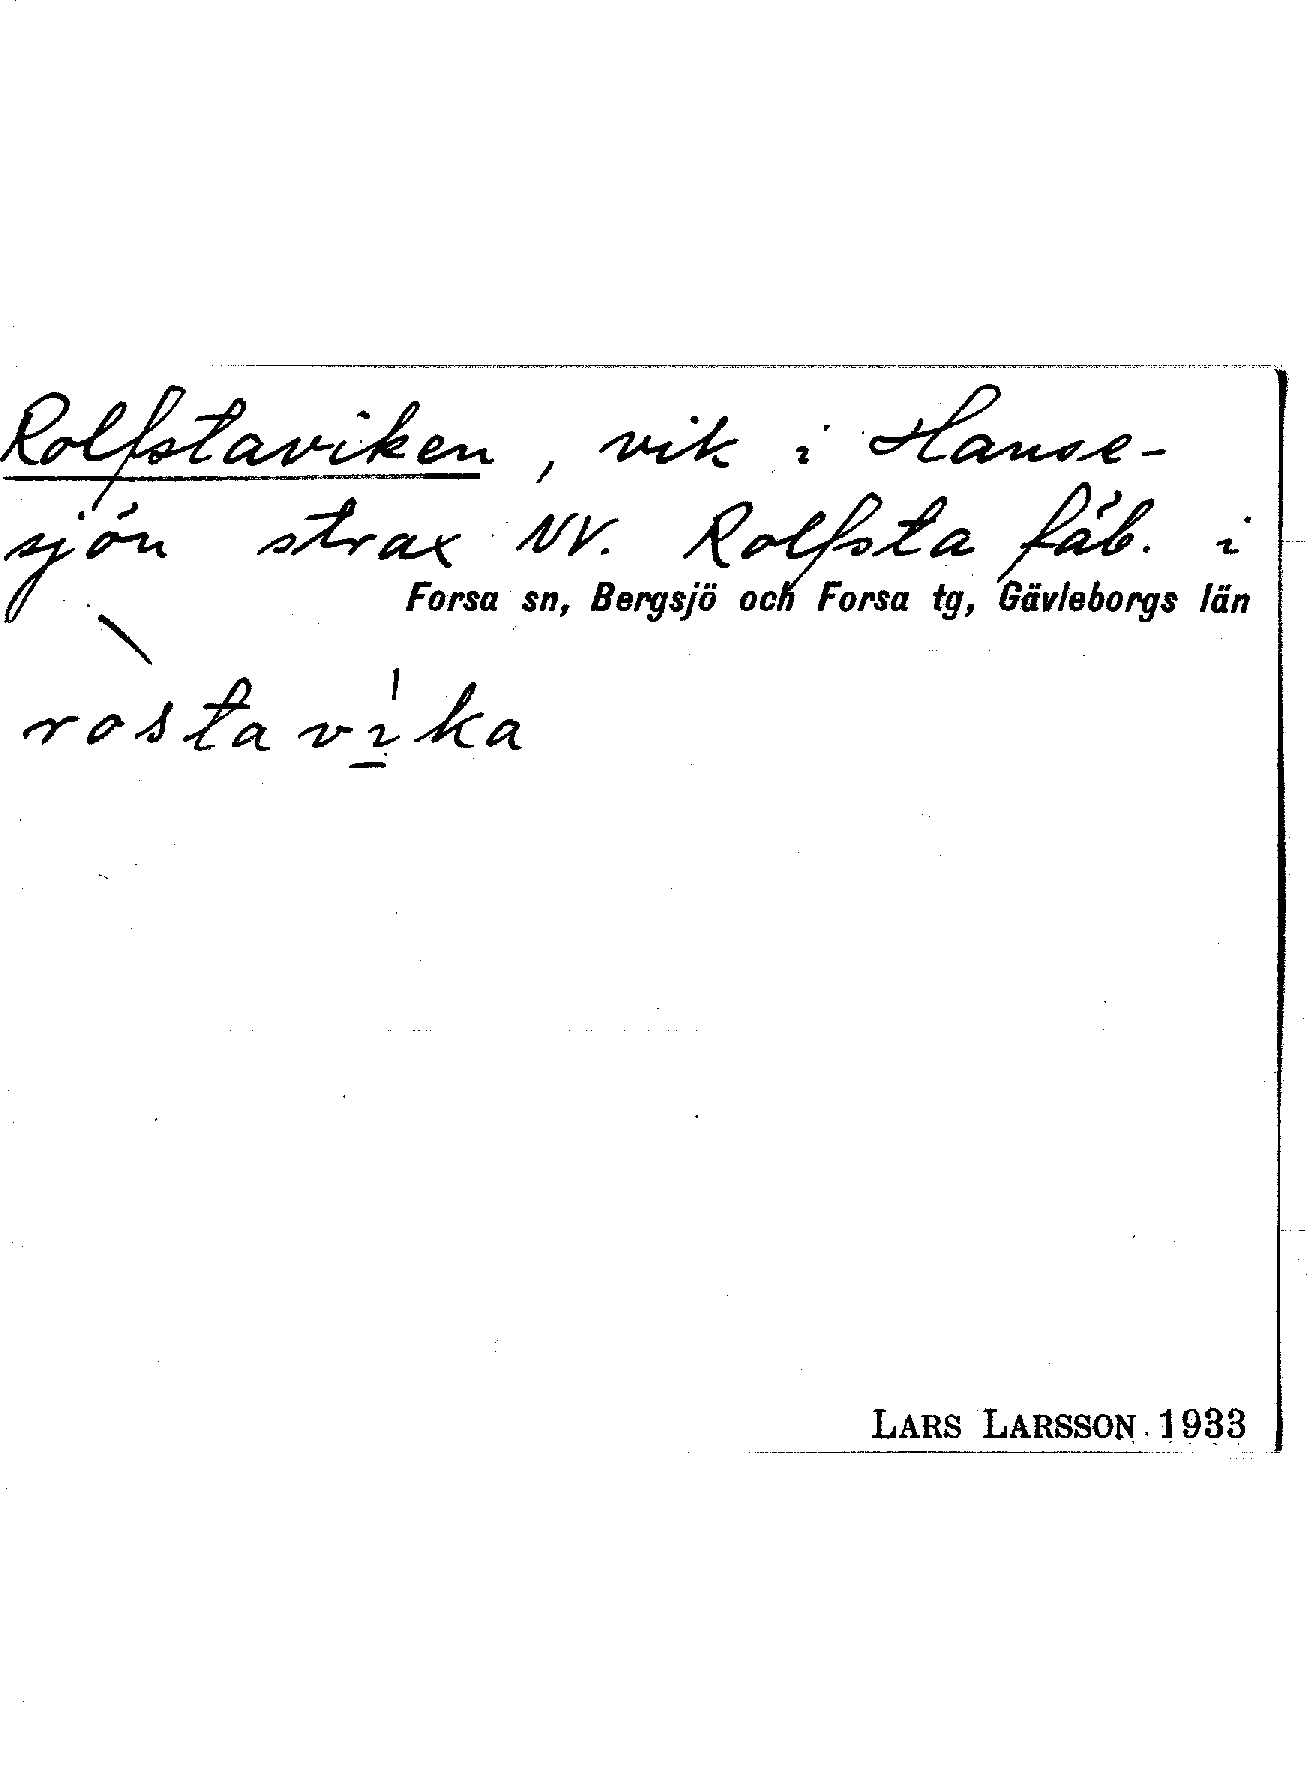 Rolfstaviken, vik i Hanse-
sjön strax NV. Rolfsta fäb. i
Forsa sn, Bergsjö och Forsa tg, Gävleborgs län
ròstaví̲ka
LARS LARSSON 1933